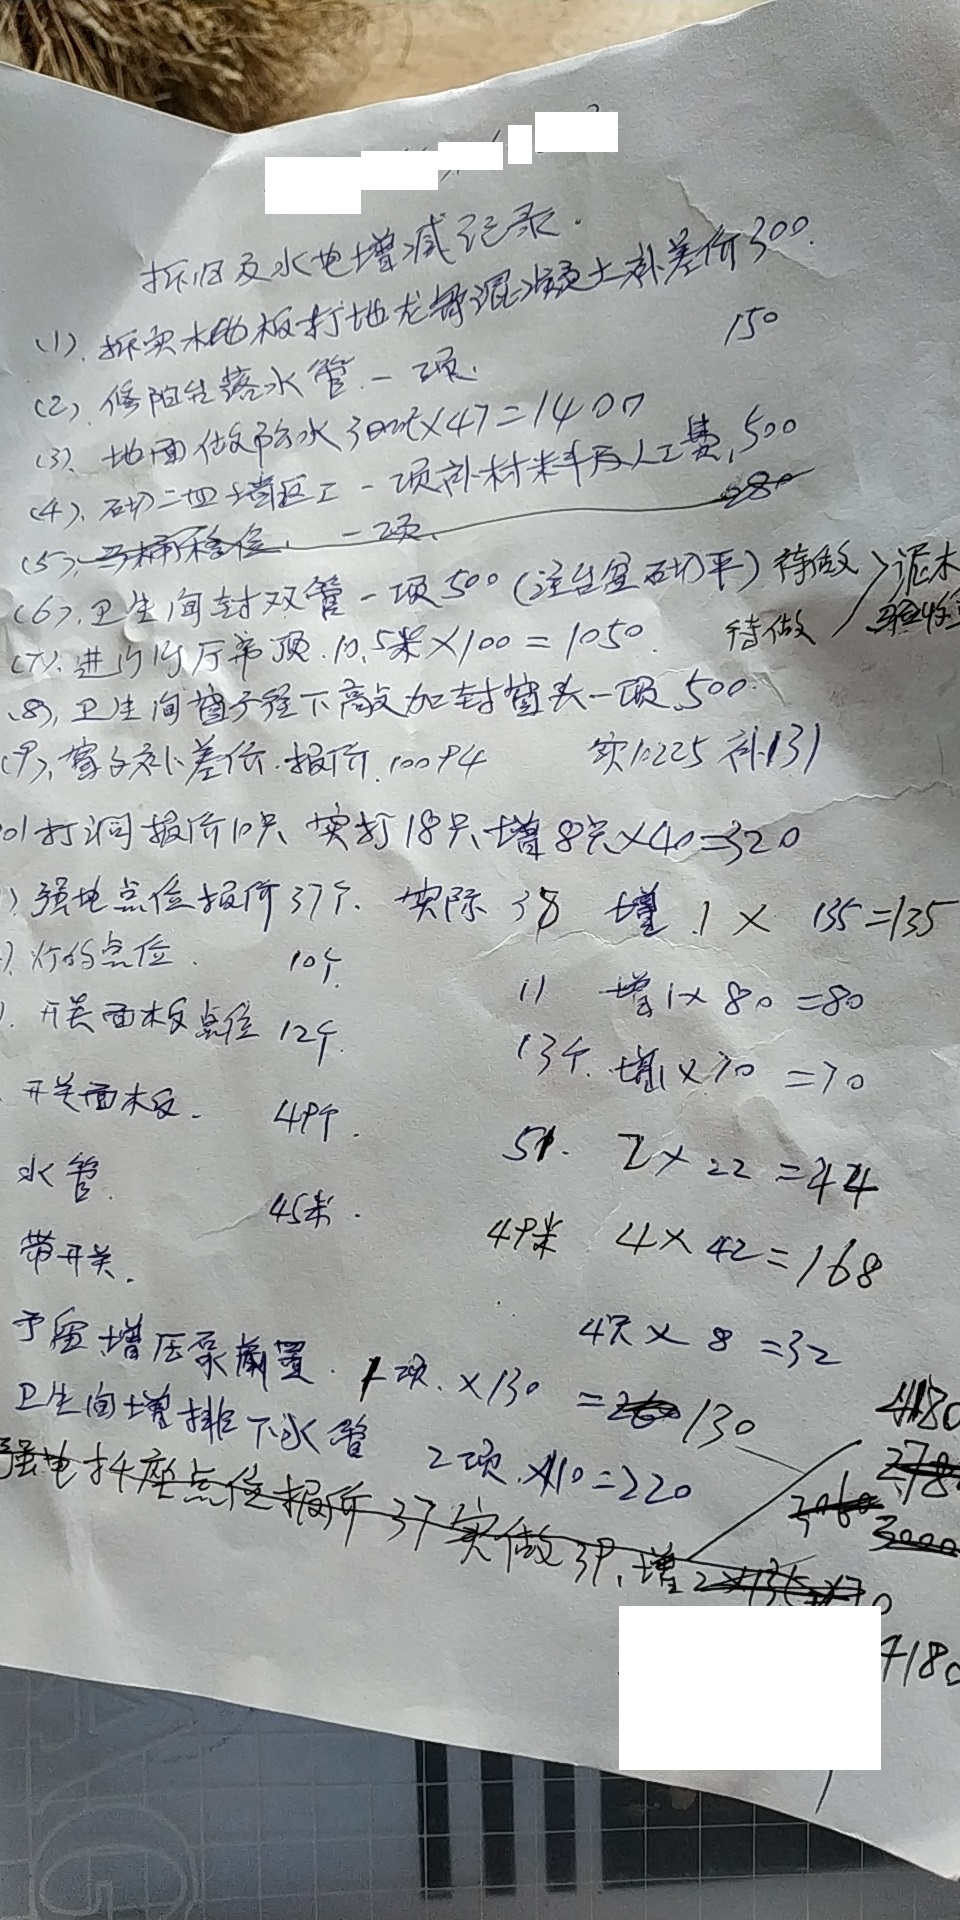 拆旧及水电增减记录.
(1). 拆实木地板打地龙骨混凝土补差价300.
(2) 修阳台落水管.一项. 150
(3). 地面做防水 30m²×47=1400
(4). 砌二四墙返工 一项补材料及人工费.500
(5). 马桶移位. 一项. 280
(6). 卫生间封双管一项500 (连台盆砌平) 待做 > 泥木
(7). 进门厅吊顶.10.5米×100=1050. 待做 验收
(8). 卫生间管子经下敲加封管头一项.500.
(9). 窗子补差价.报价.10094 实10225 补131
01打洞报价10只 实打18只增8只×40=320
)强电点位报价37个. 实际 38 增.1 × 135=135
). 灯的点位. 10个. 11 增1×80=80
). 开关面板点位 12个. 13个. 增1×70=70
开关面板. 49个. 51. 2×22=44
水管. 45米. 49米 4×42=168
带开关. 4只×8=32
予留增压泵 置. 1项.×130 =260 130
卫生间增排下水管 2项.×110=220
4180
强电插座点位报价37实做39.增2×135
3060 278
3000
4180